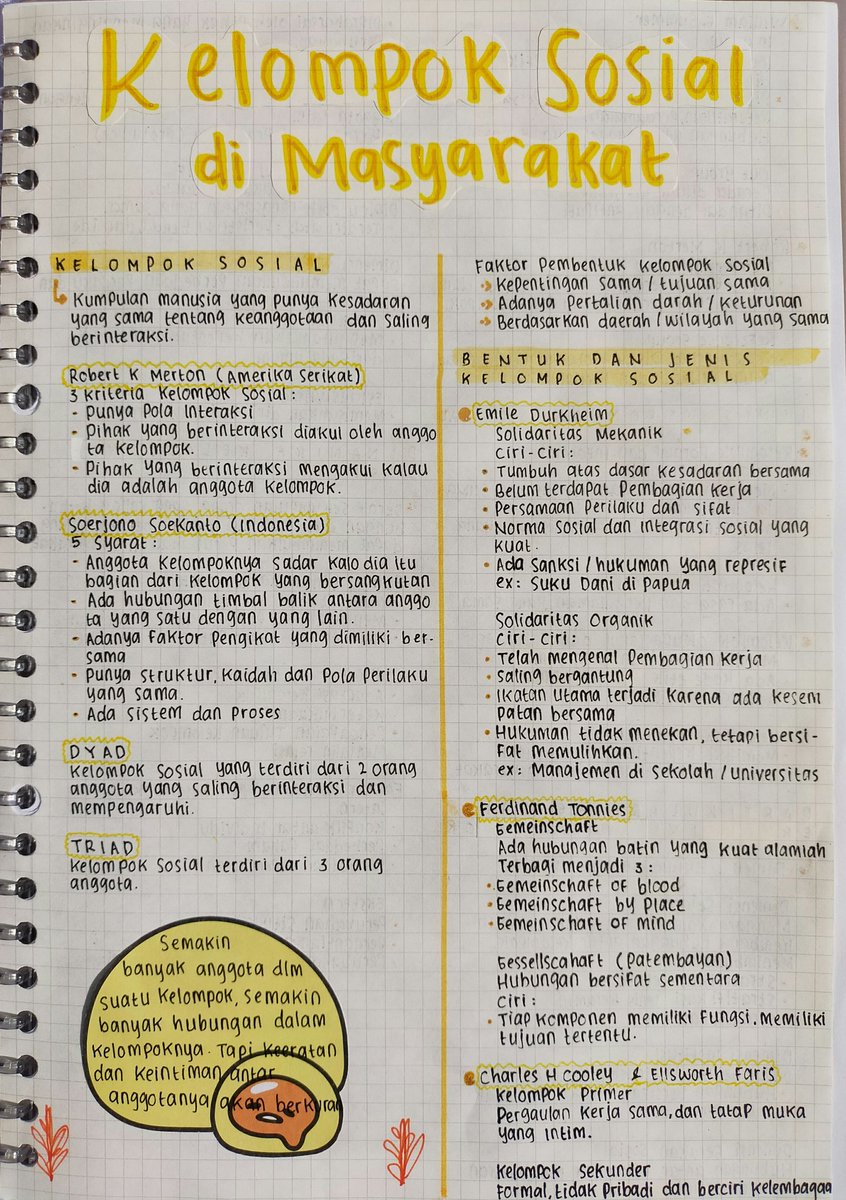 Kelompok Sosial
di Masyarakat
KELOMPOK SOSIAL
Kumpulan manusia yang punya kesadaran
yang sama tentang keanggotaan dan saling
berinteraksi.
Robert K Merton (Amerika Serikat)
3 kriteria kelompok sosial :
- Punya Pola Interaksi
- Pihak yang berinteraksi diakui oleh anggo
ta kelompok.
- Pihak yang berinteraksi mengakui kalau
dia adalah anggota kelompok.
Soerjono Soekanto (Indonesia)
5 Syarat :
- Anggota kelompoknya sadar kalo dia itu
bagian dari kelompok yang bersangkutan
- Ada hubungan timbal balik antara anggo
ta yang satu dengan yang lain.
- Adanya faktor pengikat yang dimiliki ber-
sama
- Punya struktur, kaidah dan pola perilaku
yang sama.
- Ada sistem dan proses
DYAD
Kelompok sosial yang terdiri dari 2 orang
anggota yang saling berinteraksi dan
mempengaruhi.
TRIAD
Kelompok sosial terdiri dari 3 orang
anggota.
Semakin
banyak anggota dlm
suatu kelompok, semakin
banyak hubungan dalam
kelompoknya. Tapi keeratan
dan keintiman antar
anggotanya akan berkurang
Faktor Pembentuk Kelompok Sosial
Kepentingan sama / tujuan sama
Adanya Pertalian darah / keturunan
Berdasarkan daerah / wilayah yang sama
BENTUK DAN JENIS
KELOMPOK SOSIAL
Emile Durkheim
Solidaritas Mekanik
Ciri-Ciri :
• Tumbuh atas dasar kesadaran bersama
• Belum terdapat Pembagian kerja
• Persamaan Perilaku dan sifat
• Norma sosial dan integrasi sosial yang
kuat.
• Ada Sanksi / hukuman yang represif
ex: Suku Dani di Papua
Solidaritas Organik
Ciri-Ciri :
• Telah mengenal Pembagian kerja
• Saling bergantung
• Ikatan utama terjadi karena ada kesem
patan bersama
• Hukuman tidak menekan, tetapi bersi-
fat memulihkan.
ex: Manajemen di sekolah / universitas
Ferdinand Tonnies
Gemeinschaft
Ada hubungan batin yang kuat alamiah
Terbagi menjadi 3 :
• Gemeinschaft of blood
• Gemeinschaft by place
• Gemeinschaft of mind
Gessellscahaft (Patembayan)
Hubungan bersifat sementara
Ciri :
• Tiap komponen memiliki fungsi. Memiliki
tujuan tertentu.
Charles H Cooley & Ellsworth Faris
Kelompok Primer
Pergaulan kerja sama, dan tatap muka
yang intim.
Kelompok Sekunder
Formal, tidak pribadi dan berciri kelembagaa